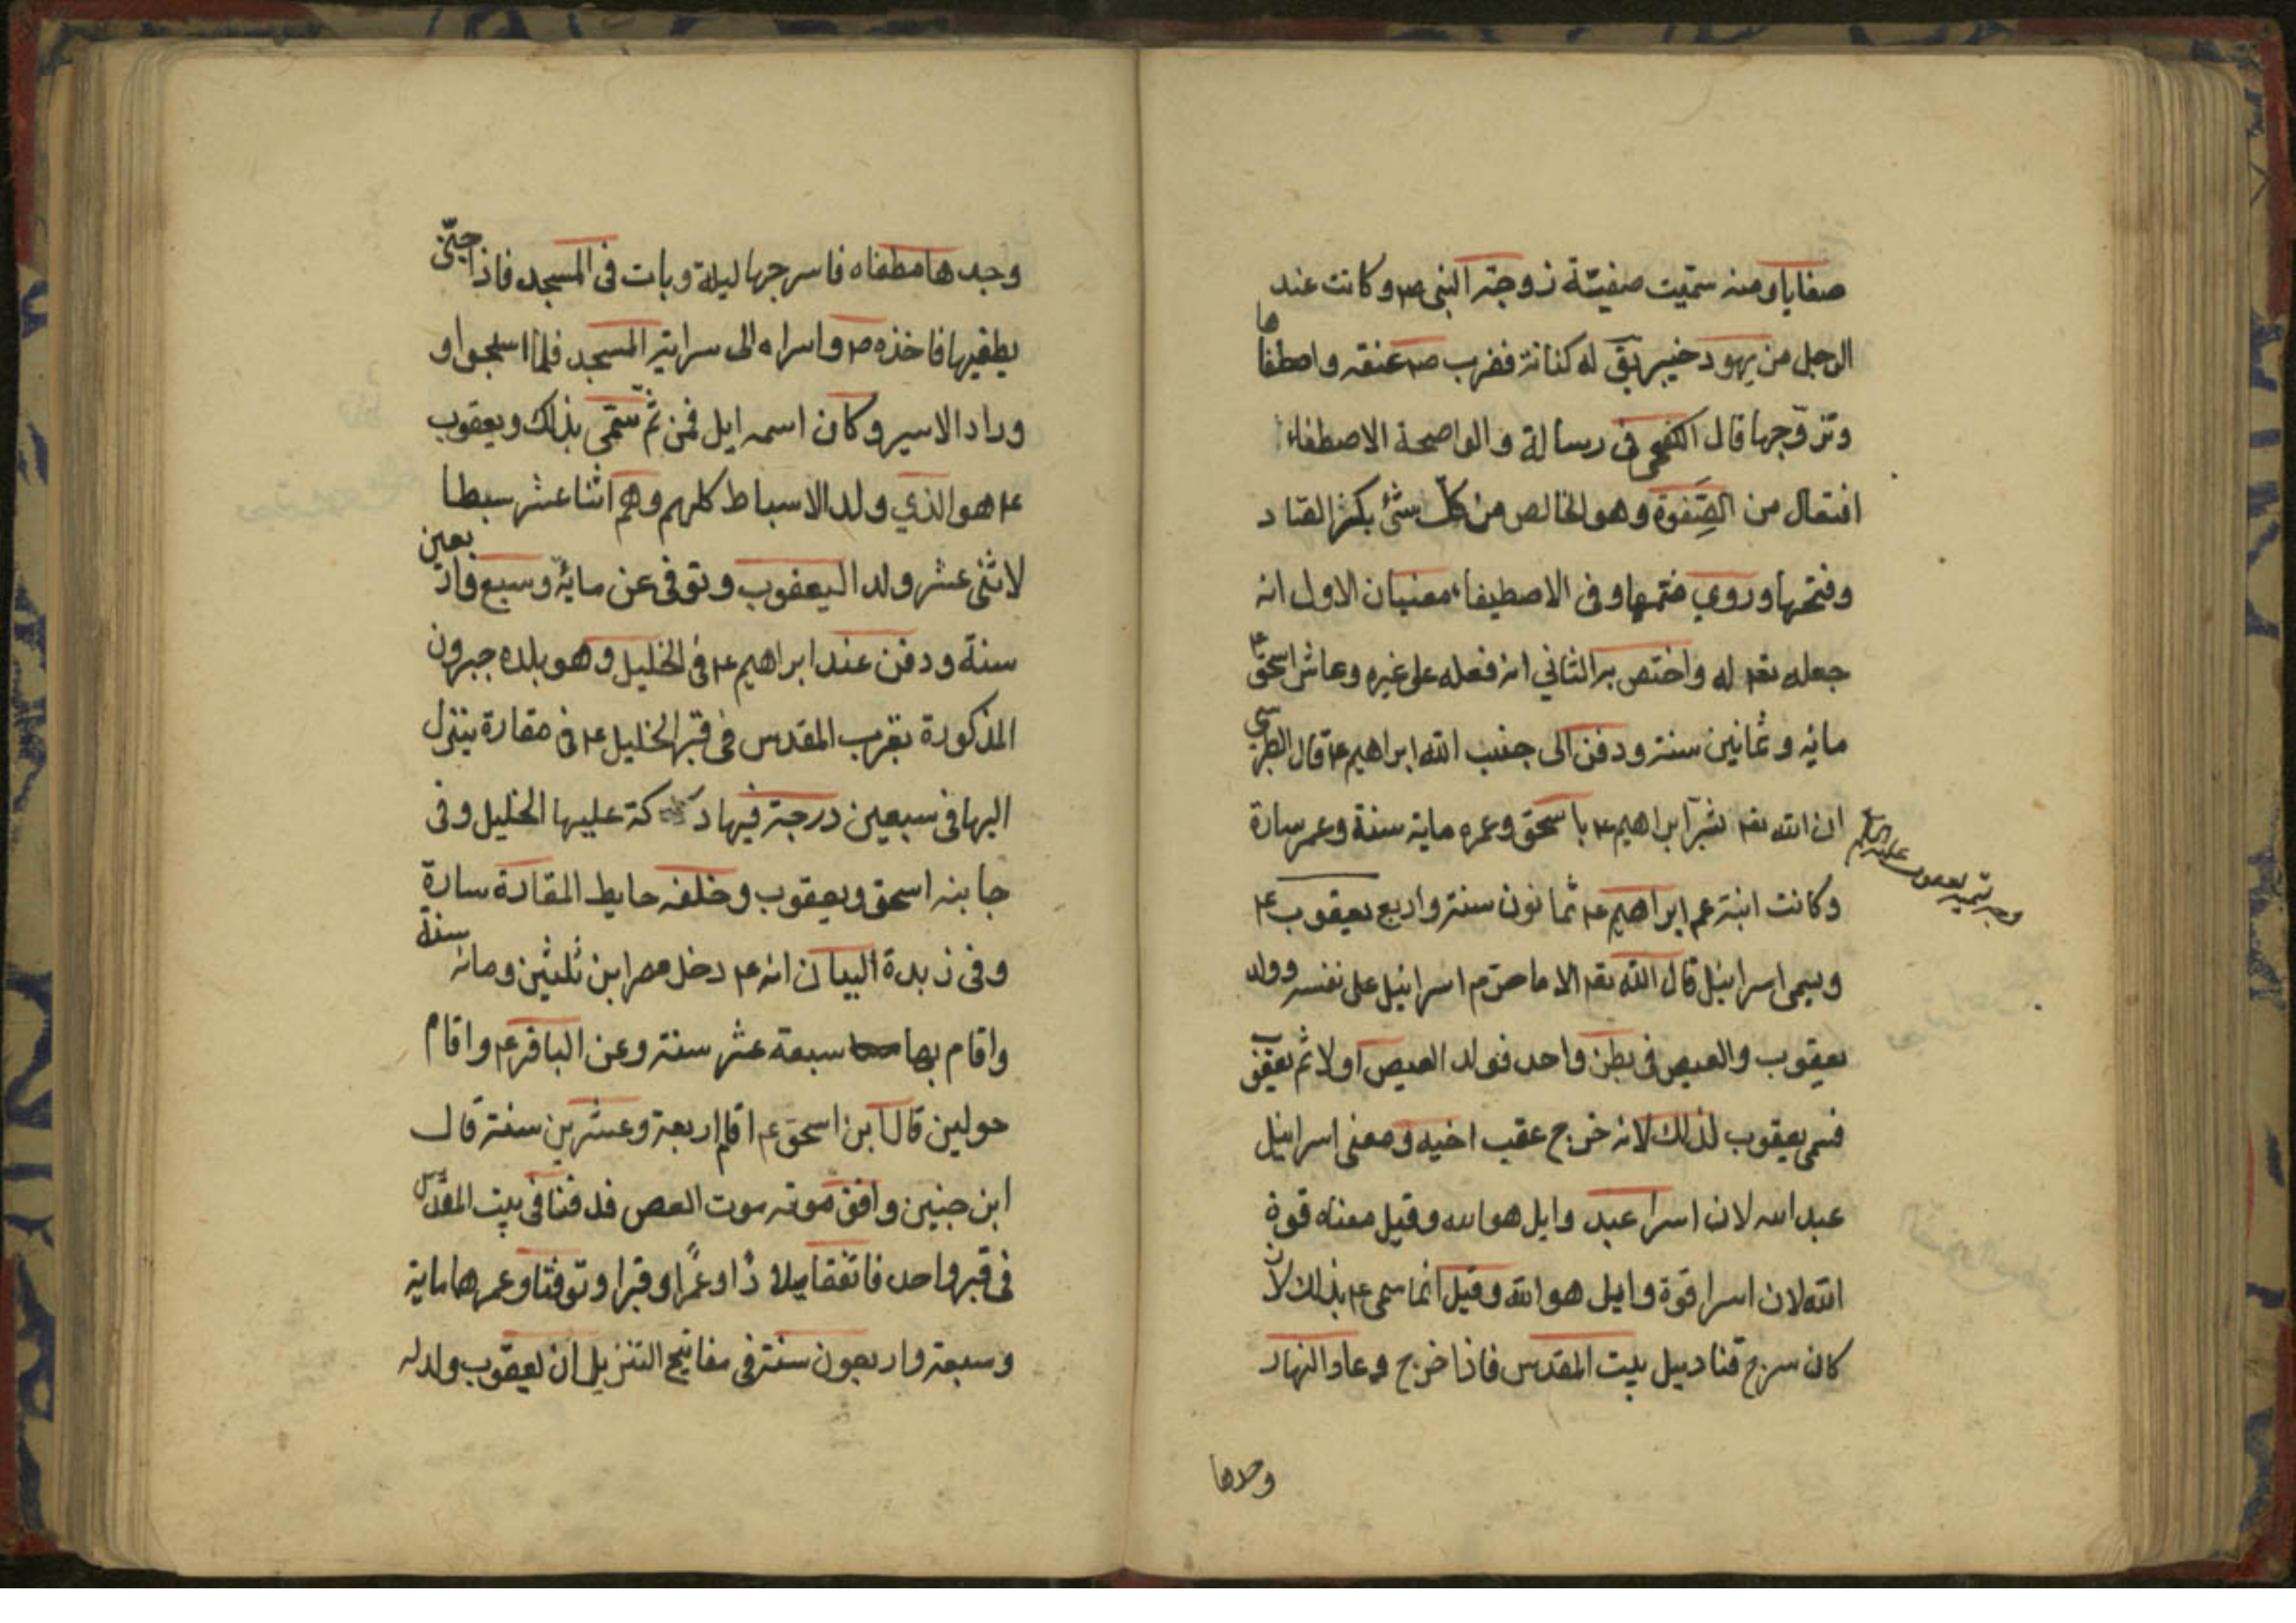 صفايا ومنه سمّيت صفيّة زوجة النبى ص وكانت عند
الرجل من يهود خيبر يق له كنانة فضرب ص عنقه واصطفاها
وتزوّجها قال الكفعمى فى رسالة والواضحة الاصطفاء
افتعال من الصِّفوة وهو الخالص من كلّ شئ بكسر الصاد
وفتحها وروي ضمّها وفى الاصطيفاء معنيان الاول انه
جعله تعم له واختص به الثاني انه فعله على غيره وعاش اسحق ع
مائه وثمانين سنة ودفن الى جنب ابراهيم ع قال الطبرسي
ان الله تعم بشّر ابراهيم ع باسحق وعمره ماية سنة وعمر سارة
وكانت ابنة عم ابراهيم ع ثمانون سنة واربع يعقوب ع
وجه تسميه يعقوب عليه السلام
ويسمى اسرائيل قال الله تعم الا ما حرّم اسرائيل على نفسه وولد
يعقوب والعيص فى بطن واحد فولد العيص اولا ثم يعقوب
فسمى يعقوب لذلك لانه خرج عقب اخيه ومعنى اسرائيل
عبد الله لان اسرا عبد وايل هو الله وقيل معناه قوة
الله لان اسرا قوة وايل هو الله وقيل انما سمى ع بذلك لان
كان سرج قناديل بيت المقدس فاذا خرج وعاد النهار
وجدها
وجدها مطفاه فاسرجها ليلة وبات فى المسجد فاذا جنّى
يطفيها فاخذه ص واسراه الى سراية المسجد فلما اسجوا و
وراد الاسير وكان اسمه ايل فمن ثمّ سمّى بذلك ويعقوب
ع هو الذي ولد الاسباط كلهم وهم اثنا عشر سبطا
لاثنى عشر ولد اليعقوب وتوفى عن مايئة وسبع واربعين
سنة ودفن عند ابراهيم ع فى الخليل وهو بلده جبرون
المذكورة بقرب المقدس فى قبر الخليل ع فى مقارة ينزل
اليها فى سبعين درجة فيها دكة عليها الخليل وفى
جابنه اسحق ويعقوب وخلفه حايط المقارة سارة
وفى زبدة البيان انه ع دخل مصر ابن ثلثين ومائه سنة
واقام بها سبعة عشر سنة وعن الباقر ع واقام
حولين قال ابن اسحق ع اقام اربعة وعشرين سنة قال
ابن جنين وافق موته موت العص فدفنا فى بيت المقدّس
فى قبر واحد فاتفقا ميلادًا وعمرًا وقبرا وتوفتا وعمرهما ماية
وسبعة واربعون سنة فى مفاتيح التنزيل ان يعقوب ولد له